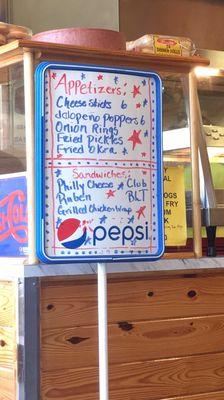 DINNER
Appetizers:
Cheese Sticks 6
Jalapeno Poppers 6
Onion Rings
Fried Pickles
Fried Okra
Sandwiches:
Philly Cheese Club
Ruben BLT
Grilled Chicken Wrap
pepsi